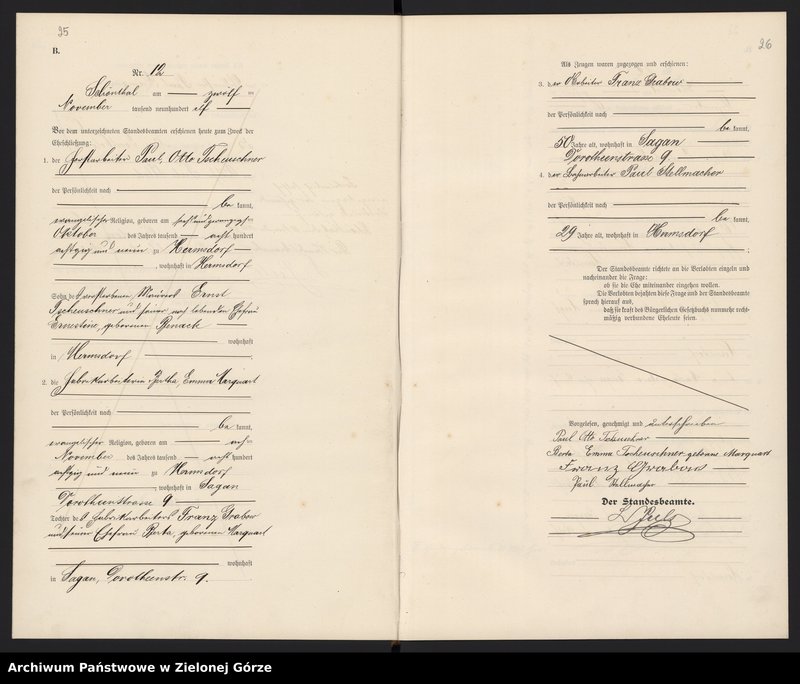 25
B.
Nr. 12
Schönthal am zwölf ten
November tausend neunhundert elf
Vor dem unterzeichneten Standesbeamten erschienen heute zum Zweck der
Eheschließung:
1. der Forstarbeiter Paul, Otto Tscheuschner
der Persönlichkeit nach
be kannt,
evangelischer Religion, geboren am ten
Oktober des Jahres tausend acht hundert
achtzig und neun zu Hermsdorf
, wohnhaft in Hermsdorf
Sohn des verstorbenen Maurers Ernst
Tscheuschner und seiner noch lebenden Ehefrau
Ernestine, geborenen
wohnhaft
in Hermsdorf
2. die Fabrikarbeiterin Bertha, Emma Marquart
der Persönlichkeit nach
be kannt,
evangelischer Religion, geboren am ten
November des Jahres tausend acht hundert
achtzig und neun zu Hermsdorf
, wohnhaft in Sagan
Dorotheenstrasse 9
Tochter des Fabrikarbeiters Franz Grabow
und seiner Ehefrau Berta, geborenen Marquart
wohnhaft
in Sagan, Dorotheenstr. 9.
26
Als Zeugen waren zugezogen und erschienen:
3. der Arbeiter Franz Grabow
der Persönlichkeit nach
be kannt,
50 Jahre alt, wohnhaft in Sagan
Dorotheenstrasse 9
4. der Paul Stellmacher
der Persönlichkeit nach
be kannt,
29 Jahre alt, wohnhaft in Hermsdorf
Der Standesbeamte richtete an die Verlobten einzeln und
nacheinander die Frage:
ob sie die Ehe miteinander eingehen wollen.
Die Verlobten bejahten diese Frage und der Standesbeamte
sprach hierauf aus,
daß sie kraft des Bürgerlichen Gesetzbuchs nunmehr recht-
mäßig verbundene Eheleute seien.
Vorgelesen, genehmigt und unterschrieben
Paul Otto Tscheuschner
Berta Emma Tscheuschner geborene Marquart
Franz Grabow
Paul Stellmacher
Der Standesbeamte.
Archiwum Państwowe w Zielonej Górze